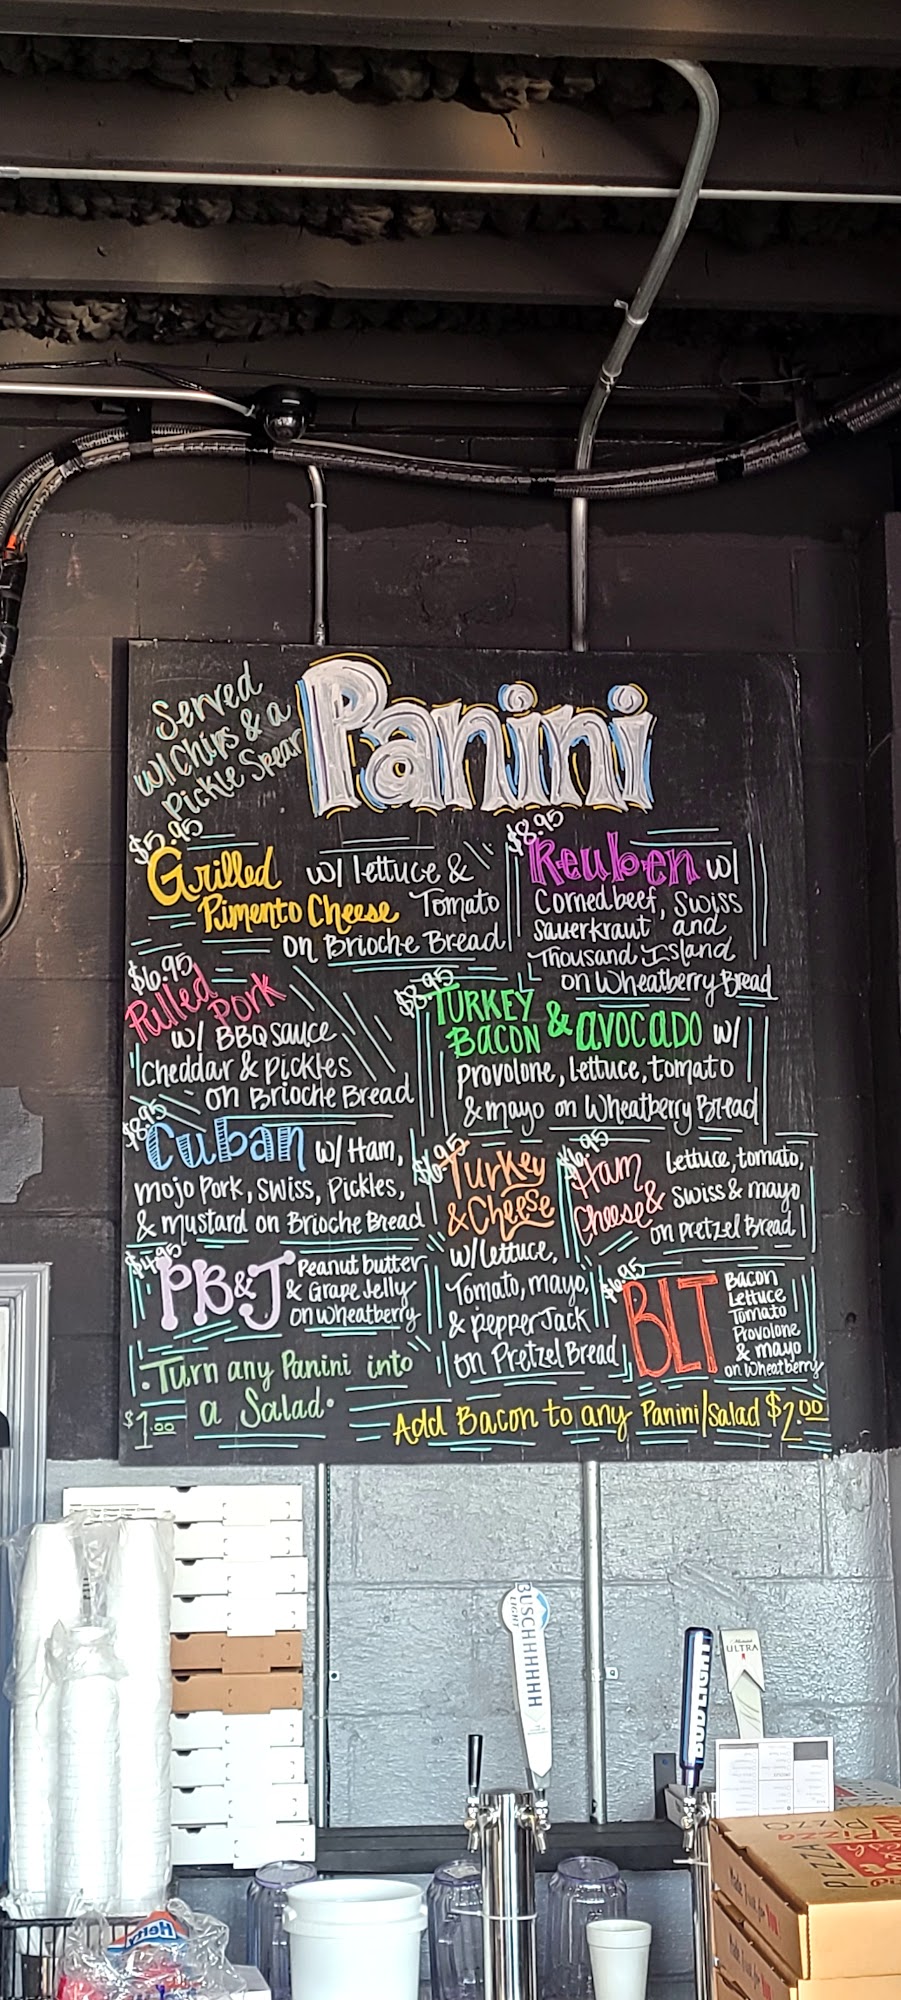 Served
w/ Chips & a
Pickle Spear
Panini
$5.95
Grilled
Pimento Cheese
w/ lettuce &
Tomato
on Brioche Bread
$8.95
Reuben w/
Corned beef, Swiss
Sauerkraut and
Thousand Island
on Wheatberry Bread
$6.95
Pulled Pork
w/ BBQ sauce
Cheddar & Pickles
on Brioche Bread
$8.95
TURKEY
BACON & avocado w/
provolone, lettuce, tomato
& mayo on Wheatberry Bread
$8.95
Cuban w/ Ham,
mojo Pork, Swiss, Pickles,
& mustard on Brioche Bread
$6.95
Turkey
& Cheese
w/ Lettuce,
Tomato, mayo,
& pepper Jack
on Pretzel Bread
$6.95
Ham
& Cheese
Lettuce, tomato,
Swiss & mayo
on pretzel Bread
$4.95
PB&J
Peanut butter
& Grape Jelly
on wheatberry
$6.95
BLT
Bacon
Lettuce
Tomato
Provolone
& mayo
on Wheatberry
. Turn any Panini into
a Salad.
$1.00
Add Bacon to any Panini/Salad $2.00
BUSCHHHHHH
LIGHT
BUD LIGHT
ULTRA
PIZZA
PIZZA
PIZZA
Hefty